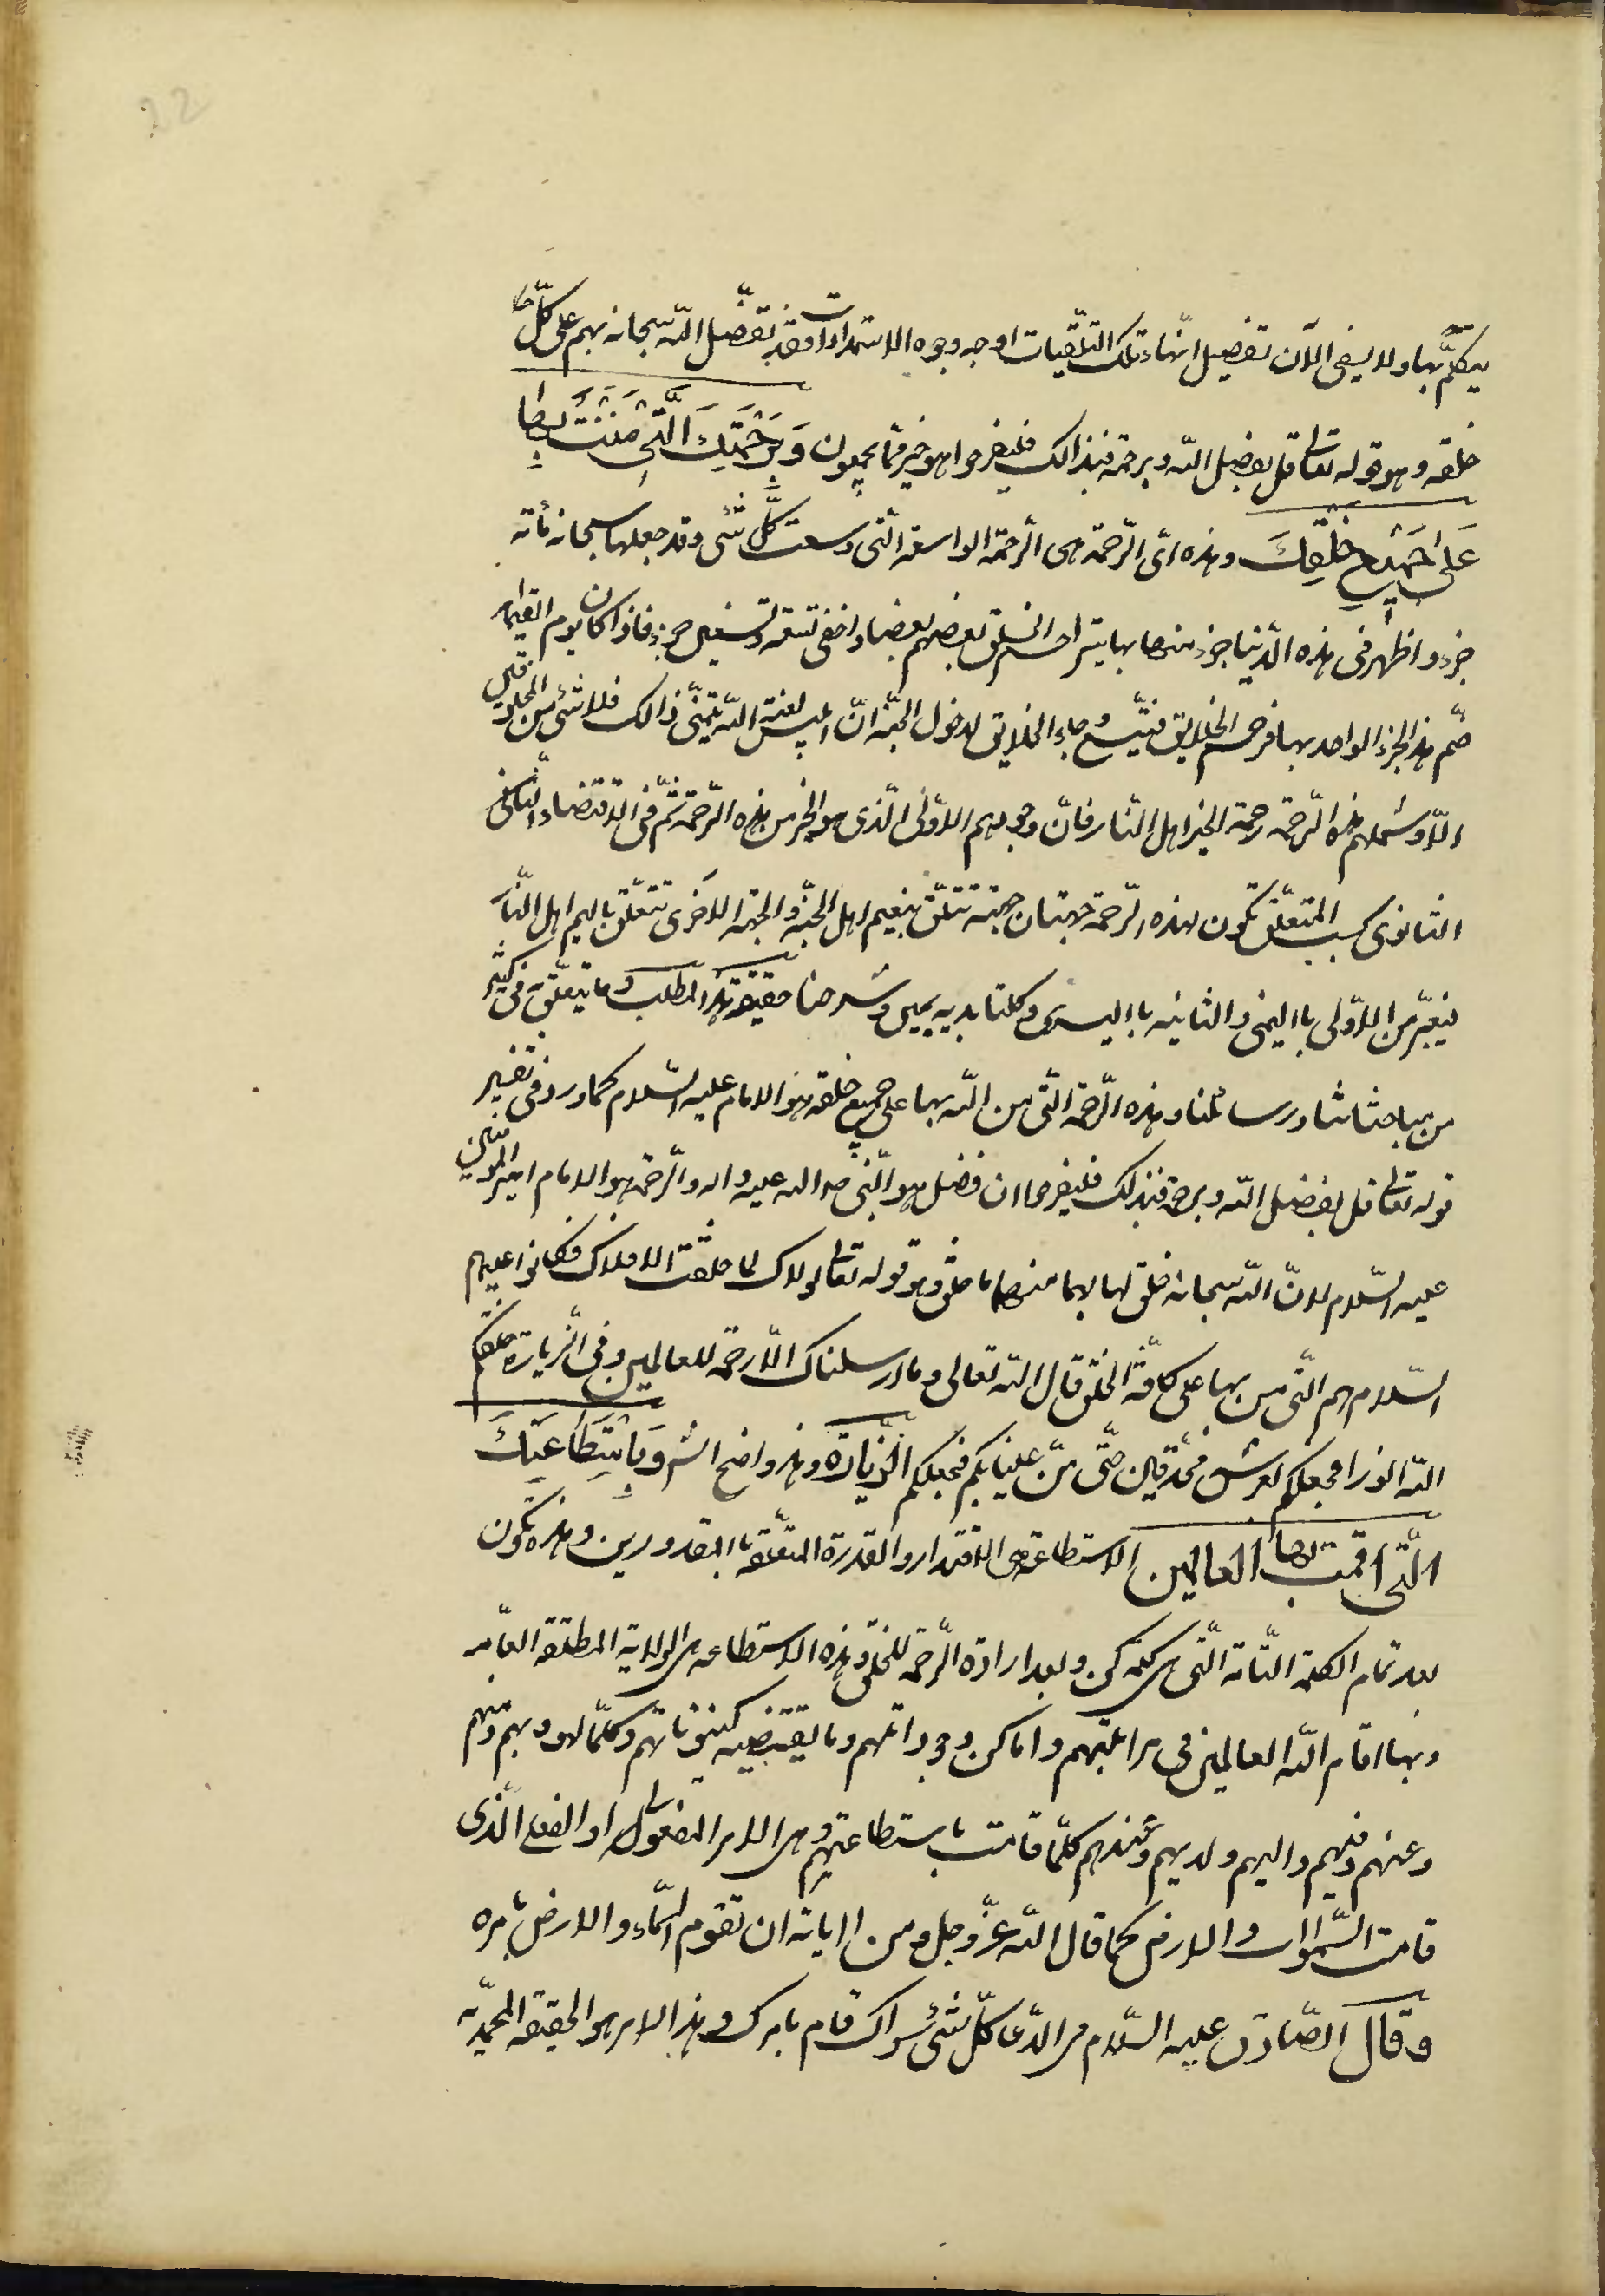 يتكلّم بها ولا يسعنى الآن تفصيل انّهاء تلك التلقّيات او جه وجوه الاستمدادات فقد تفضّل اللّه سبحانه بهم على كلّ
خلقه وهو قوله تعالى قل بفضل اللّه وبرحمته فبذالك فليفرحوا هو خير ممّا يجمعون وَبِرَحْمَتِكَ الَّتى مَنَنْتَ بِها
عَلى جَميعِ خَلْقِكَ وهذه اى الرّحمة هى الرّحمة الواسعة الّتى وسعت كلّ شئ وقد جعلها سبحانه مأة
جزء واظهر فى هذه الدّنيا جزء منها بها يتراحم الخلق بعضهم بعضا واخفى تسعة وتسعين جزء فاذا كان يوم القيامة
ضمّ هذا الجزء الواحد بها فرحم الخلايق فيتّسع رجاء الخلايق لدخول الجنّة انّ ابليس لعنة اللّه يتمنّى ذالك فلا شئ من المخلوقين
الّا وشملهم هذه الرّحمة رحمة الخير اهل النّار فانّ وجودهم الاوّلى الّذى هو الخير من هذه الرّحمة ثمّ فى الاقتضاء الثانى
الثانوى كسب المتعلّق تكون لهذه الرّحمة جهتان جهة تتعلّق بنعيم اهل الجنّة والجهة الاخرى تتعلّق باليم اهل النّار
فيعبّر من الاوّلى باليمنى والثانيه باليسرى وكلتا يديه يمين وشرحنا حقيقة هذا المطلب وما يتعلّق به فى كثير
من مباحثاتنا ورسائلنا وهذه الرّحمة الّتى من اللّه بها على جميع خلقه هو الامام عليه السّلام كما ورد فى تفسير
قوله تعالى قل بفضل اللّه وبرحمته فبذلك فليفرحوا ان فضل هو النّبى صلى اللّه عليه واله والرّحمة هو الامام امير المؤمنين
عليه السّلام لانّ اللّه سبحانه خلق لهما بهما منهما ما خلق وهو قوله تعالى لولاك لما خلقت الافلاك فكانوا عليهم
السّلام هم الّتى من بها على كافّة الخلق قال اللّه تعالى وما ارسلناك الّا رحمة للعالمين وفى الزّيارة خلقكم
اللّه انوارا فجعلكم بعرشه محدقين حتّى منّ علينا بكم فجعلكم الزّيارة وهذا واضح انشاء وَبِاسْتِطاعَتِكَ
الَّتى اقمت بها العالمين الاستطاعة هى الاقتدار والقدرة المتعلّقة بالمقدورين وهذه تكون
بعد تمام الكلمة التّامة الّتى هى كلمة كن وبعد ارادة الرّحمة للخلق وهذه الاستطاعه هى الولاية المطلقة العامّة
وبها اقام اللّه العالمين فى مراتبهم واماكن وجوداتهم وما يقتضيه كينوناتهم وكلّما لهم وبهم ومنهم
وعنهم وفيهم واليهم ولديهم وعندهم كلّما قامت باستطاعتهم وهى الامر المفعولى او الفعلى الّذى
قامت السّموات والارض كما قال اللّه عزّ وجل ومن اياته ان تقوم السّماء والارض بامره
وقال الصّادق عليه السّلام فى الدّعا كلّ شئ سواك قام بامرك وهذا الامر هو الحقيقة المحمديّه